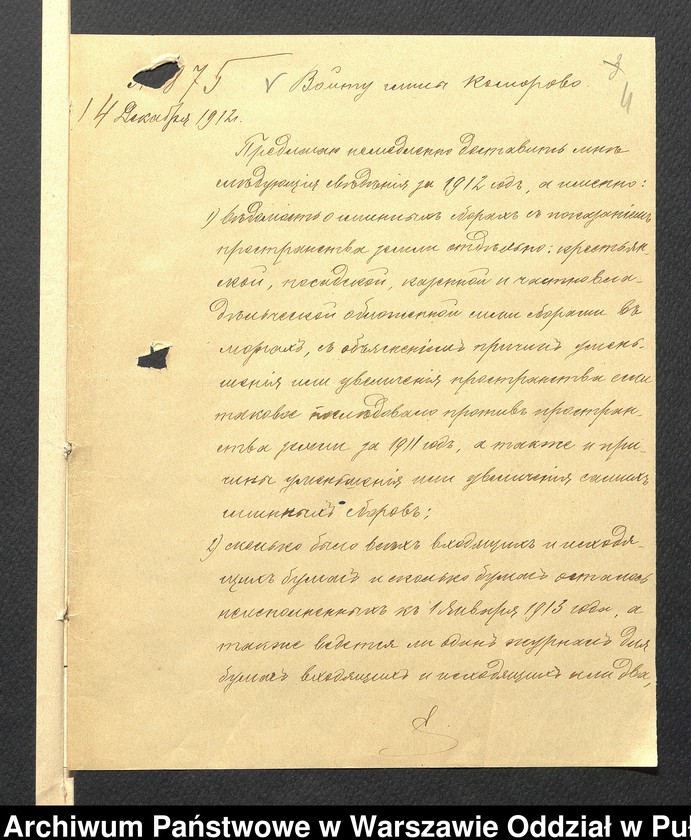 875
Войту гмины Коморово.
4
14 Декабря 1912 г.
Предлагаю немедленно доставить мнѣ
слѣдующія свѣдѣнія за 1912 годъ, а именно:
1) вѣдомость о гминныхъ сборахъ съ показаніемъ
пространства земли отдѣльно: крестьян-
ской, посадской, казенной и частновла-
дѣльческой обложенной сими сборами въ
моргахъ, съ объясненіемъ причинъ умень-
шенія или увеличенія пространства если
таковое послѣдовало противъ простран-
ства земли за 1911 годъ, а также и при-
чины уменьшенія или увеличенія самихъ
гминныхъ сборовъ;
2) сколько было всѣхъ входящихъ и исходя-
щихъ бумагъ и сколько бумагъ осталось
неисполненныхъ къ 1 Января 1913 года, а
также ведется ли одинъ журналъ для
бумагъ входящихъ и исходящихъ или два,
Archiwum Państwowe w Warszawie Oddział w Pu